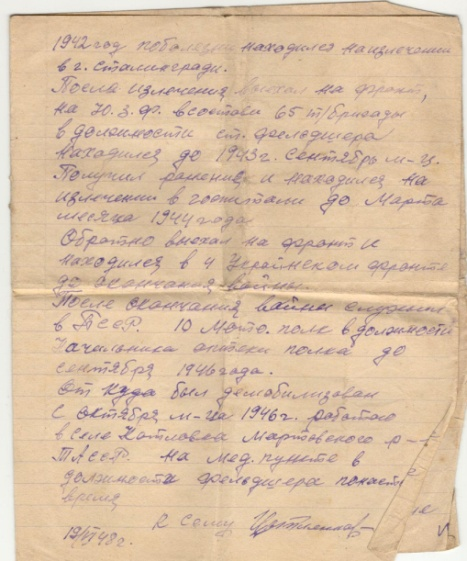 1942 год по болезни находился на излечении
в г. Сталингради.
После излечения выехал на фронт,
на Ю.З.Ф. в состави 65 т/бригады
в должности ст. фельдшера
находился до 1943г. сентябрь м-ц.
Получил ранение и находился на
излечении в госпитали до Марта
месяца 1944 года.
Обратно выехал на фронт и
находился в 4 Украинском фронте
до окончания вайны.
После окончания вайны служил
в 10 Мото. полк в должности
Начильника аптеки полка до
сентября 1946 года.
От куда был демобилизован
с Октября м-ца 1946г. работаю
в селе Котловка р-
ТАССР. на мед. пункте в
должности фельдшера
время
К сему
48г.